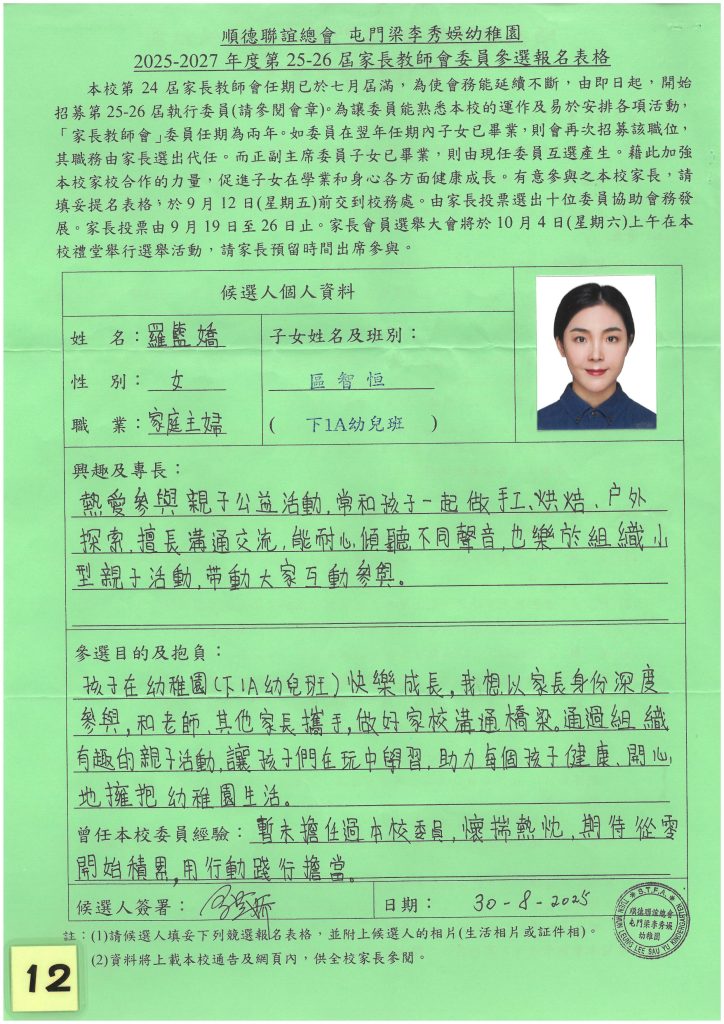 順德聯誼總會 屯門梁李秀娛幼稚園
2025-2027 年度第 25-26 屆家長教師會委員參選報名表格
本校第 24 屆家長教師會任期已於七月屆滿，為使會務能延續不斷，由即日起，開始
招募第 25-26 屆執行委員(請參閱會章)。為讓委員能熟悉本校的運作及易於安排各項活動，
「家長教師會」委員任期為兩年。如委員在翌年任期內子女已畢業，則會再次招募該職位，
其職務由家長選出代任。而正副主席委員子女已畢業，則由現任委員互選產生。藉此加強
本校家校合作的力量，促進子女在學業和身心各方面健康成長。有意參與之本校家長，請
填妥提名表格，於 9 月 12 日(星期五)前交到校務處。由家長投票選出十位委員協助會務發
展。家長投票由 9 月 19 日至 26 日止。家長會員選舉大會將於 10 月 4 日(星期六)上午在本
校禮堂舉行選舉活動，請家長預留時間出席參與。
候選人個人資料
姓 名：羅藍嬌
子女姓名及班別：
性 別：女
區智恒
職 業：家庭主婦
( 下1A幼兒班 )
興趣及專長：
熱愛參與親子公益活動，常和孩子一起做手工、烘焙、户外
探索，擅長溝通交流，能耐心傾聽不同聲音，也樂於組織小
型親子活動，带動大家互動參與。
參選目的及抱負：
孩子在幼稚園(下1A幼兒班)快樂成長，我想以家長身份深度
參與，和老師、其他家長攜手，做好家校溝通橋梁。通過組織
有趣的親子活動，讓孩子們在玩中學習，助力每個孩子健康、開心
地擁抱幼稚園生活。
曾任本校委員經驗：暫未擔任過本校委員，懷揣熱忱，期待從零
開始積累，用行動踐行擔當。
候選人簽署：
日期：30-8-2025
S.T.F.A.
TUEN MUN LEUNG LEE SAU YU KINDERGARTEN
順德聯誼總會
屯門梁李秀娛
幼稚園
註：(1)請候選人填妥下列競選報名表格，並附上候選人的相片(生活相片或証件相)。
(2)資料將上載本校通告及網頁內，供全校家長參閱。
12